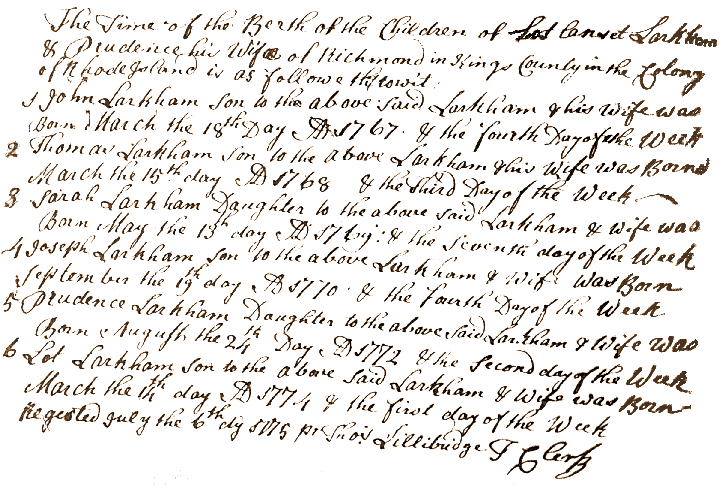 The Time of the Berth of the Children of Lot Larkham
& Prudence his Wife of Richmond in Kings County in the Colony
of Rhode Island is as followeth towit
1 John Larkham Son to the above said Larkham & his Wife was
Born March the 18th Day AD 1767 & the fourth Day of the Week
2 Thomas Larkham Son to the above Larkham & his Wife was Born
March the 15th day AD 1768 & the third Day of the Week
3 Sarah Larkham Daughter to the above said Larkham & Wife was
Born May the 13th day AD & the Seventh day of the Week
4 Joseph Larkham Son to the above Larkham & Wife was Born
September the 19th day AD 1770 & the fourth Day of the Week
5 Prudence Larkham Daughter to the above said Larkham & Wife was
Born August the 24th Day AD 1772 & the Second day of the Week
6 Lot Larkham Son to the above said Larkham & Wife was Born
March the 14th day AD 1774 & the first day of the Week
Regested July the 6th dy 1775 pr Thos Lillibridge T Clerk